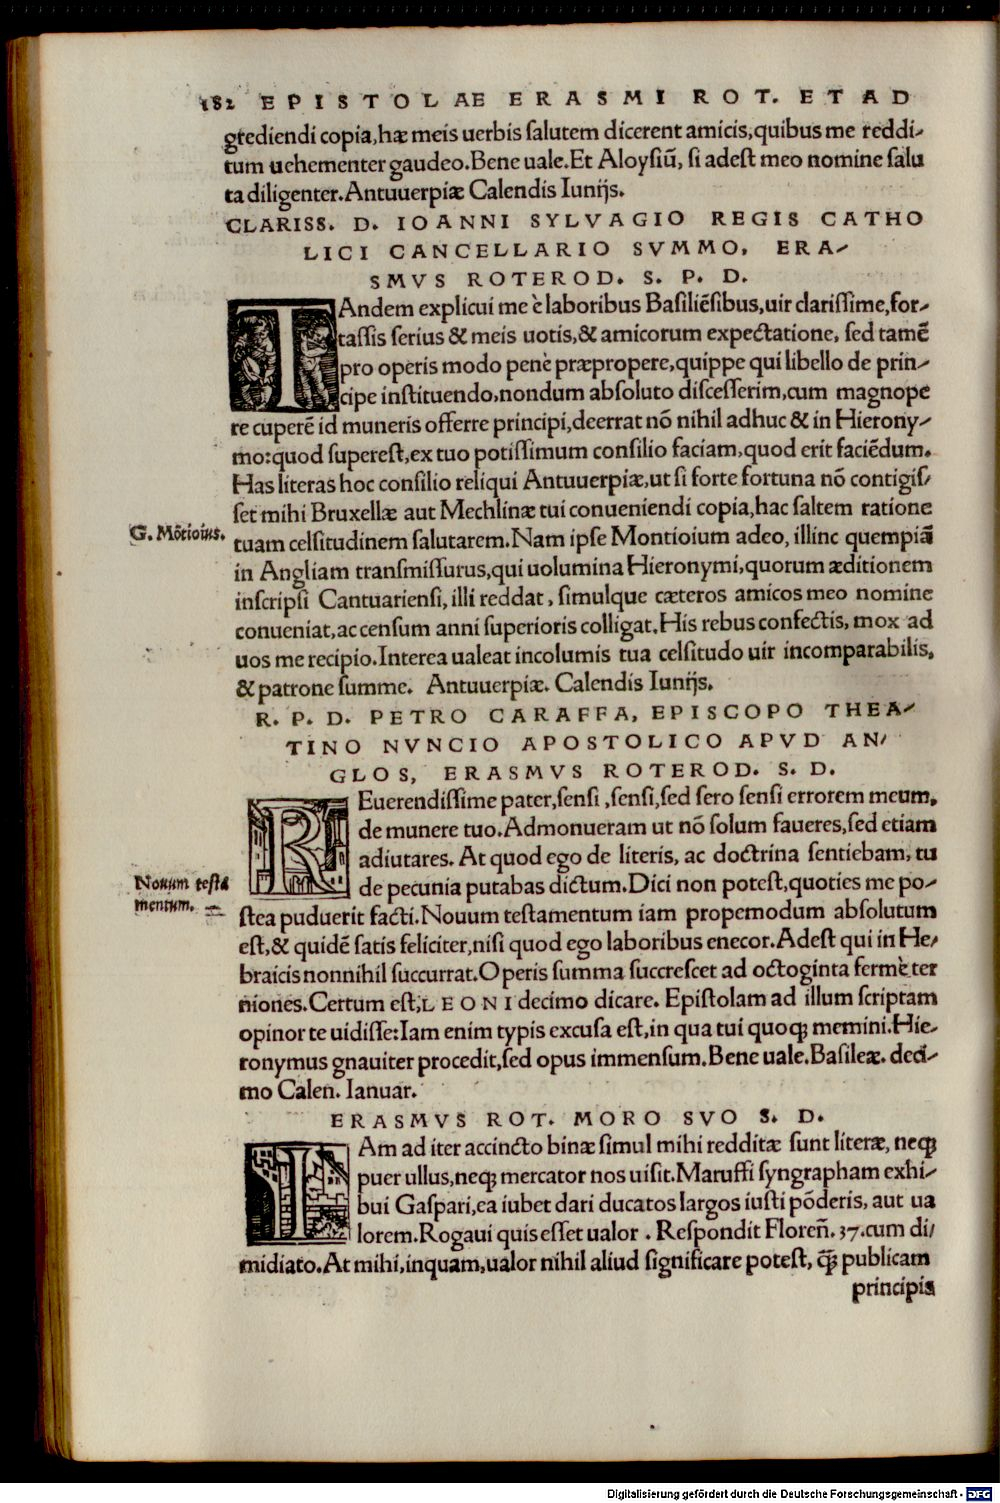 182 EPISTOLAE ERASMI ROT. ET AD
grediendi copia,hæ meis uerbis ſalutem dicerent amicis,quibus me reddi-
tum uehementer gaudeo.Bene uale.Et Aloyſiū, ſi adeſt meo nomine ſalu
ta diligenter.Antuuerpiæ Calendis Iunijs.
CLARISS. D. IOANNI SYLVAGIO REGIS CATHO
LICI CANCELLARIO SVMMO, ERA-
SMVS ROTEROD. S. P. D.
TAndem explicui me è laboribus Baſiliēſibus,uir clariſſime,for-
taſſis ſerius & meis uotis,& amicorum expectatione, ſed tamē
pro operis modo penè præpropere,quippe qui libello de prin-
cipe inſtituendo,nondum abſoluto diſceſſerim,cum magnope
re cuperē id muneris offerre principi,deerrat nō nihil adhuc & in Hierony-
mo:quod ſupereſt,ex tuo potiſſimum conſilio faciam,quod erit faciēdum.
Has literas hoc conſilio reliqui Antuuerpiæ,ut ſi forte fortuna nō contigiſ-
ſet mihi Bruxellæ aut Mechlinæ tui conueniendi copia,hac ſaltem ratione
G. Mōtioius.
tuam celſitudinem ſalutarem.Nam ipſe Montioium adeo, illinc quempiā
in Angliam transmiſſurus,qui uolumina Hieronymi,quorum æditionem
inſcripſi Cantuarienſi, illi reddat, ſimulque cæteros amicos meo nomine
conueniat,ac cenſum anni ſuperioris colligat.His rebus confectis, mox ad
uos me recipio.Interea ualeat incolumis tua celſitudo uir incomparabilis,
& patrone ſumme. Antuuerpiæ. Calendis Iunijs.
R. P. D. PETRO CARAFFA, EPISCOPO THEA-
TINO NVNCIO APOSTOLICO APVD AN-
GLOS, ERASMVS ROTEROD. S. D.
REuerendiſſime pater,ſenſi ,ſenſi,ſed ſero ſenſi errorem meum,
de munere tuo.Admonueram ut nō ſolum faueres,ſed etiam
adiutares. At quod ego de literis, ac doctrina ſentiebam, tu
Nouum teſta
mentum.
de pecunia putabas dictum.Dici non poteſt,quoties me po-
ſtea puduerit facti.Nouum teſtamentum iam propemodum abſolutum
eſt,& quidē ſatis feliciter,niſi quod ego laboribus enecor.Adeſt qui in He-
braicis nonnihil ſuccurrat.Operis ſumma ſuccreſcet ad octoginta fermè ter
niones.Certum eſt,LEONI decimo dicare. Epiſtolam ad illum ſcriptam
opinor te uidiſſe:Iam enim typis excuſa eſt,in qua tui quoq; memini.Hie-
ronymus gnauiter procedit,ſed opus immenſum.Bene uale.Baſileæ. deci-
mo Calen. Ianuar.
ERASMVS ROT. MORO SVO S. D.
IAm ad iter accincto binæ ſimul mihi redditæ ſunt literæ, neq;
puer ullus,neq; mercator nos uiſit.Maruffi ſyngrapham exhi-
bui Gaſpari,ea iubet dari ducatos largos iuſti pōderis, aut ua
lorem.Rogaui quis eſſet ualor . Reſpondit Floreñ. 37.cum di-
midiato.At mihi,inquam,ualor nihil aliud ſignificare poteſt, q̃; publicam
principis
Digitalisierung gefördert durch die Deutsche Forschungsgemeinschaft - DFG